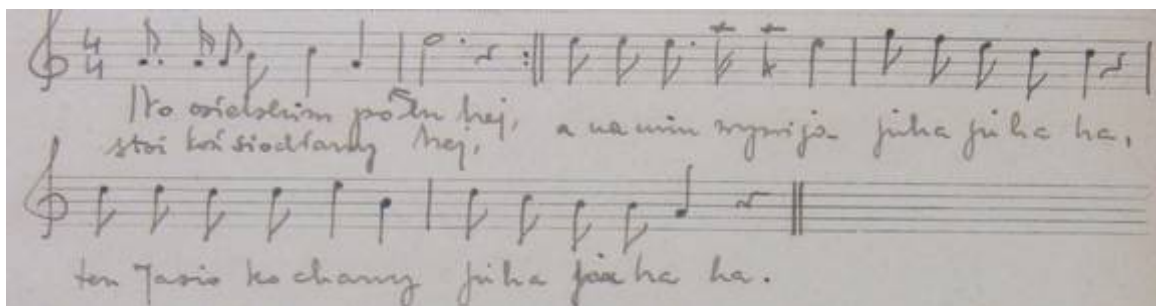 4 4
Na osielskim polu hej, a na nim wywija juha juha ha,
stoi koń siodłany hej,
ten Jasio kochany juha juha ha.